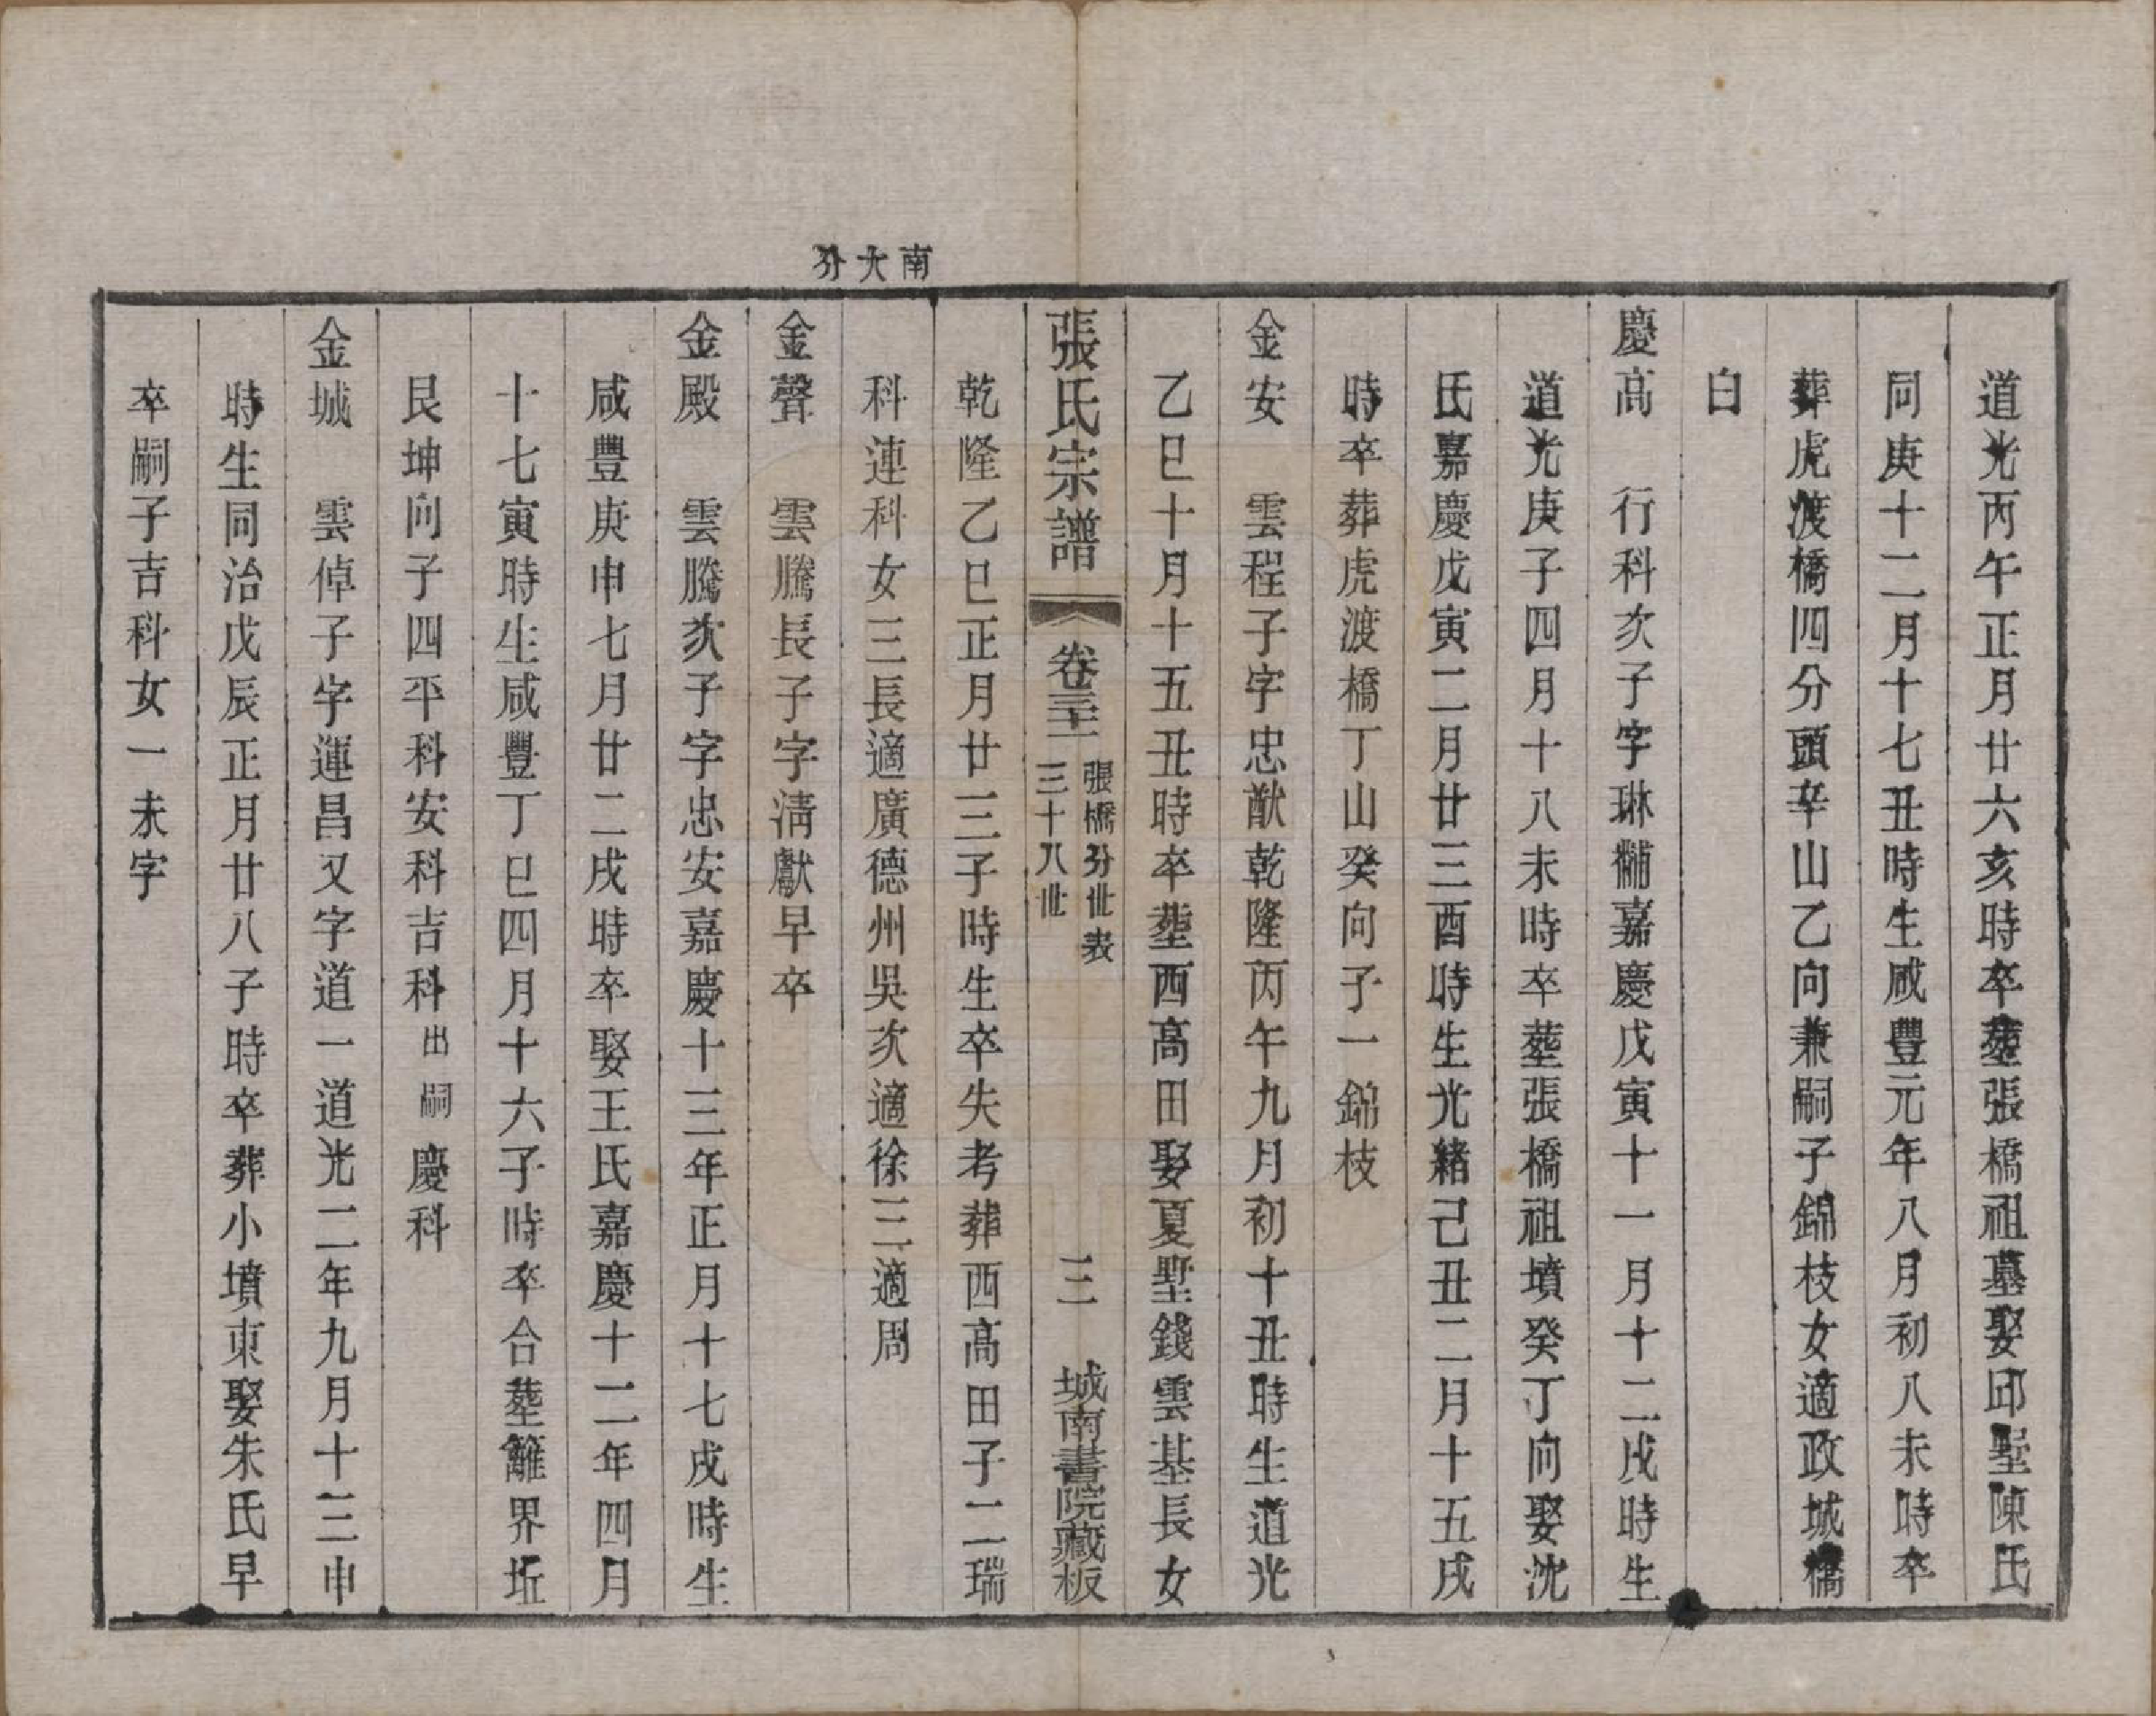 道光丙午正月廿六亥時卒塟張橋祖墓娶邱墅陳氏
同庚十二月十七丑時生咸豐元年八月初八未時卒
葬虎渡橋四分頭辛山乙向兼嗣子錦枝女適政城橋
白
慶高　行科次子字琳黼嘉慶戊寅十一月十二戌時生
道光庚子四月十八未時卒塟張橋祖墳癸丁向娶沈
氏嘉慶戊寅二月廿三酉時生光緒己丑二月十五戌
時卒葬虎渡橋丁山癸向子一錦枝
金安　雲程子字忠猷乾隆丙午九月初十丑時生道光
乙巳十月十五丑時卒塟西高田娶夏墅錢雲基長女
張氏宗譜　卷三十一　張橋分世表　三十八世　三　城南書院藏板
南大分
乾隆乙巳正月廿三子時生卒失考葬西高田子二瑞
科連科女三長適廣德州吳次適徐三適周
金聲　雲騰長子字淸獻早卒
金殿　雲騰次子字忠安嘉慶十三年正月十七戌時生
咸豐庚申七月廿二戌時卒娶王氏嘉慶十二年四月
十七寅時生咸豐丁巳四月十六子時卒合塟籬界坵
艮坤向子四平科安科吉科出嗣慶科
金城　雲倬子字運昌又字道一道光二年九月十三申
時生同治戊辰正月廿八子時卒葬小墳東娶朱氏早
卒嗣子吉科女一未字